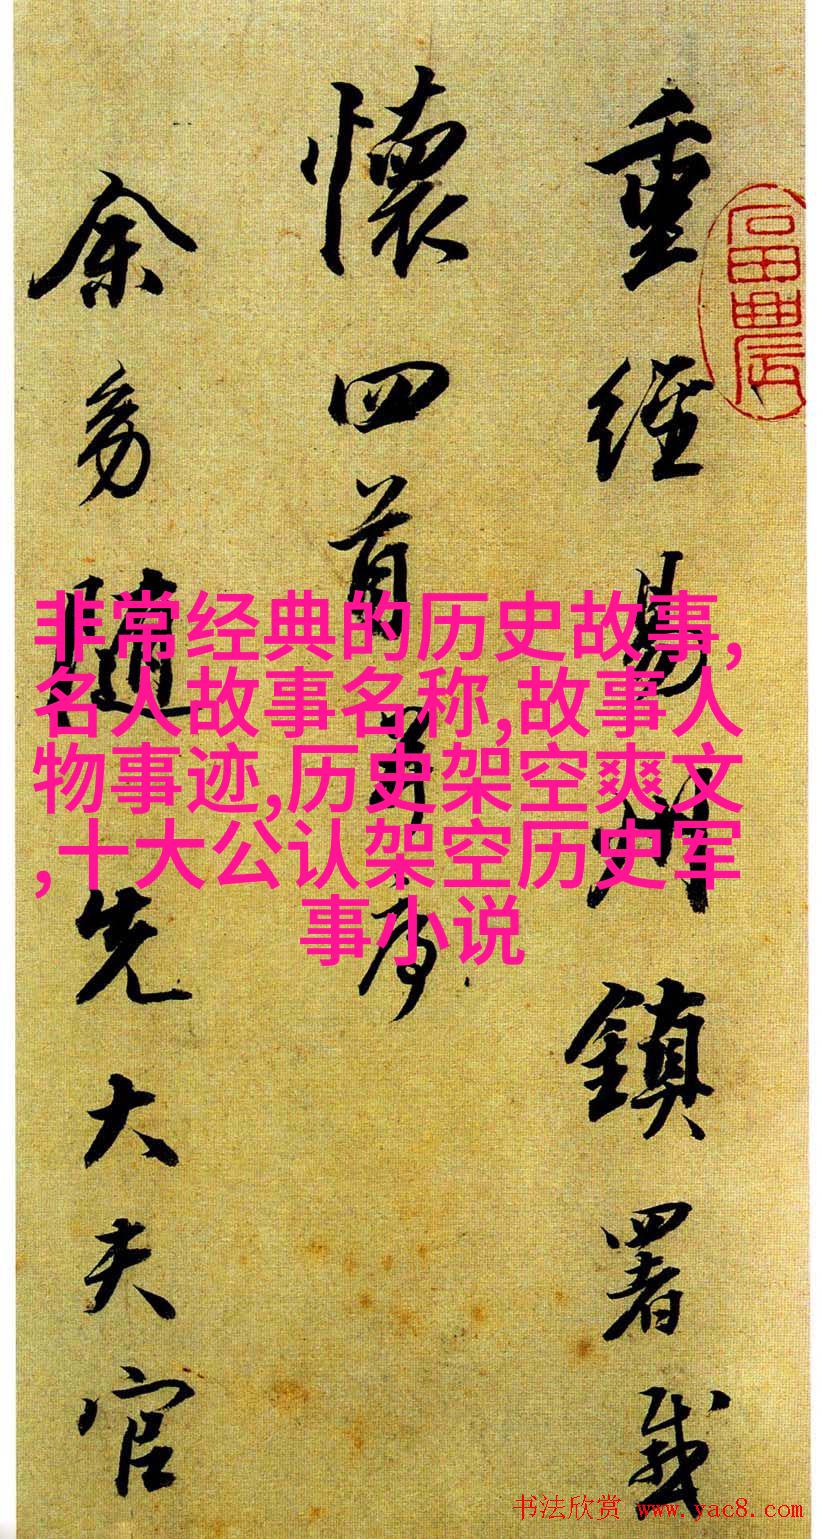 重經易州鎮署感
懷四首并序
余幼隨先大夫官
非常经典的历史故事,
名人故事名称,故事人
物事迹,历史架空爽文
,十大公认架空历史军
事小说
书法欣赏 www.yac8.com